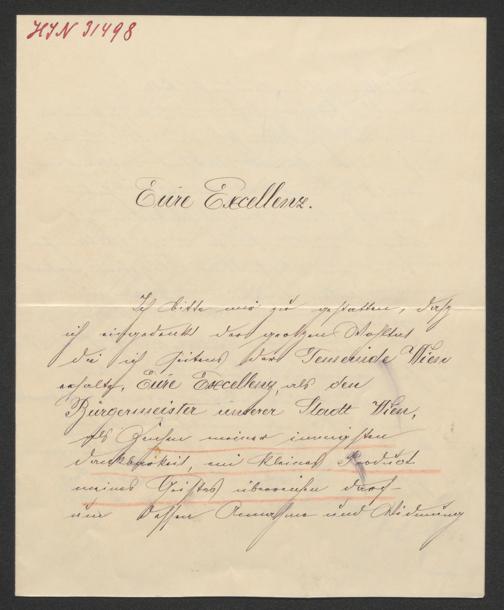 HIN 31498
Eure Excellenz.
Ich bitte mir zu gestatten, daß
ich eingedenk der großen
die ich seitens der Gemeinde Wien
erhalte, Eure Excellenz, als den
Bürgermeister unserer Stadt Wien,
als Zeichen meiner innigsten
Dankbarkeit, ein kleines Product
meines Geistes überreichen darf
um dessen Annahme und Widmung